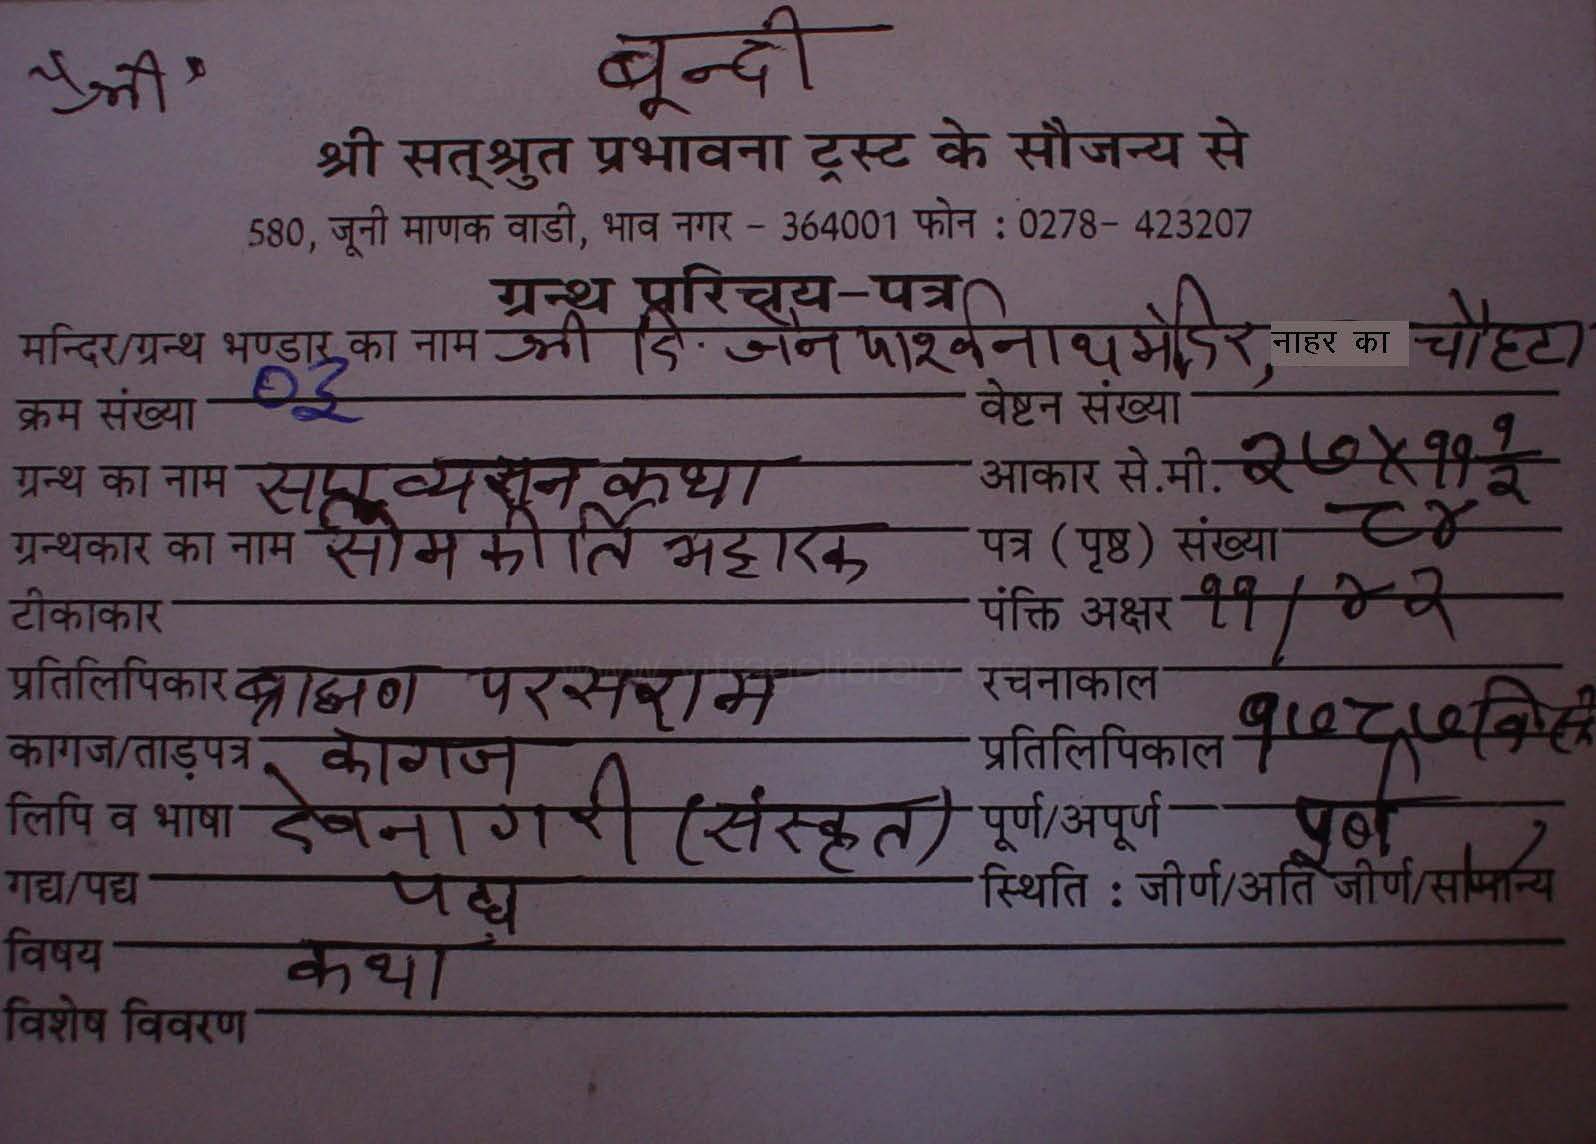 "श्री"
बून्दी
श्री सत्श्रुत प्रभावना ट्रस्ट के सौजन्य से
580, जूनी माणक वाडी, भाव नगर - 364001 फोन : 0278- 423207
ग्रन्थ परिचय-पत्र
मन्दिर/ग्रन्थ भण्डार का नाम श्री दि. जैन पार्श्वनाथ मंदिर, नाहर का चौहटा
क्रम संख्या ०३ वेष्टन संख्या
ग्रन्थ का नाम सप्त व्यसन कथा आकार से.मी. २७x११ १/२
ग्रन्थकार का नाम सोमकीर्ति भट्टारक पत्र (पृष्ठ) संख्या ८४
टीकाकार पंक्ति अक्षर ११/४२
प्रतिलिपिकार ब्राह्मण परसराम रचनाकाल
कागज/ताड़पत्र कागज प्रतिलिपिकाल १७८७
लिपि व भाषा देवनागरी (संस्कृत) पूर्ण/अपूर्ण पूर्ण
गद्य/पद्य पद्य स्थिति : जीर्ण/अति जीर्ण/सामान्य
विषय कथा
विशेष विवरण